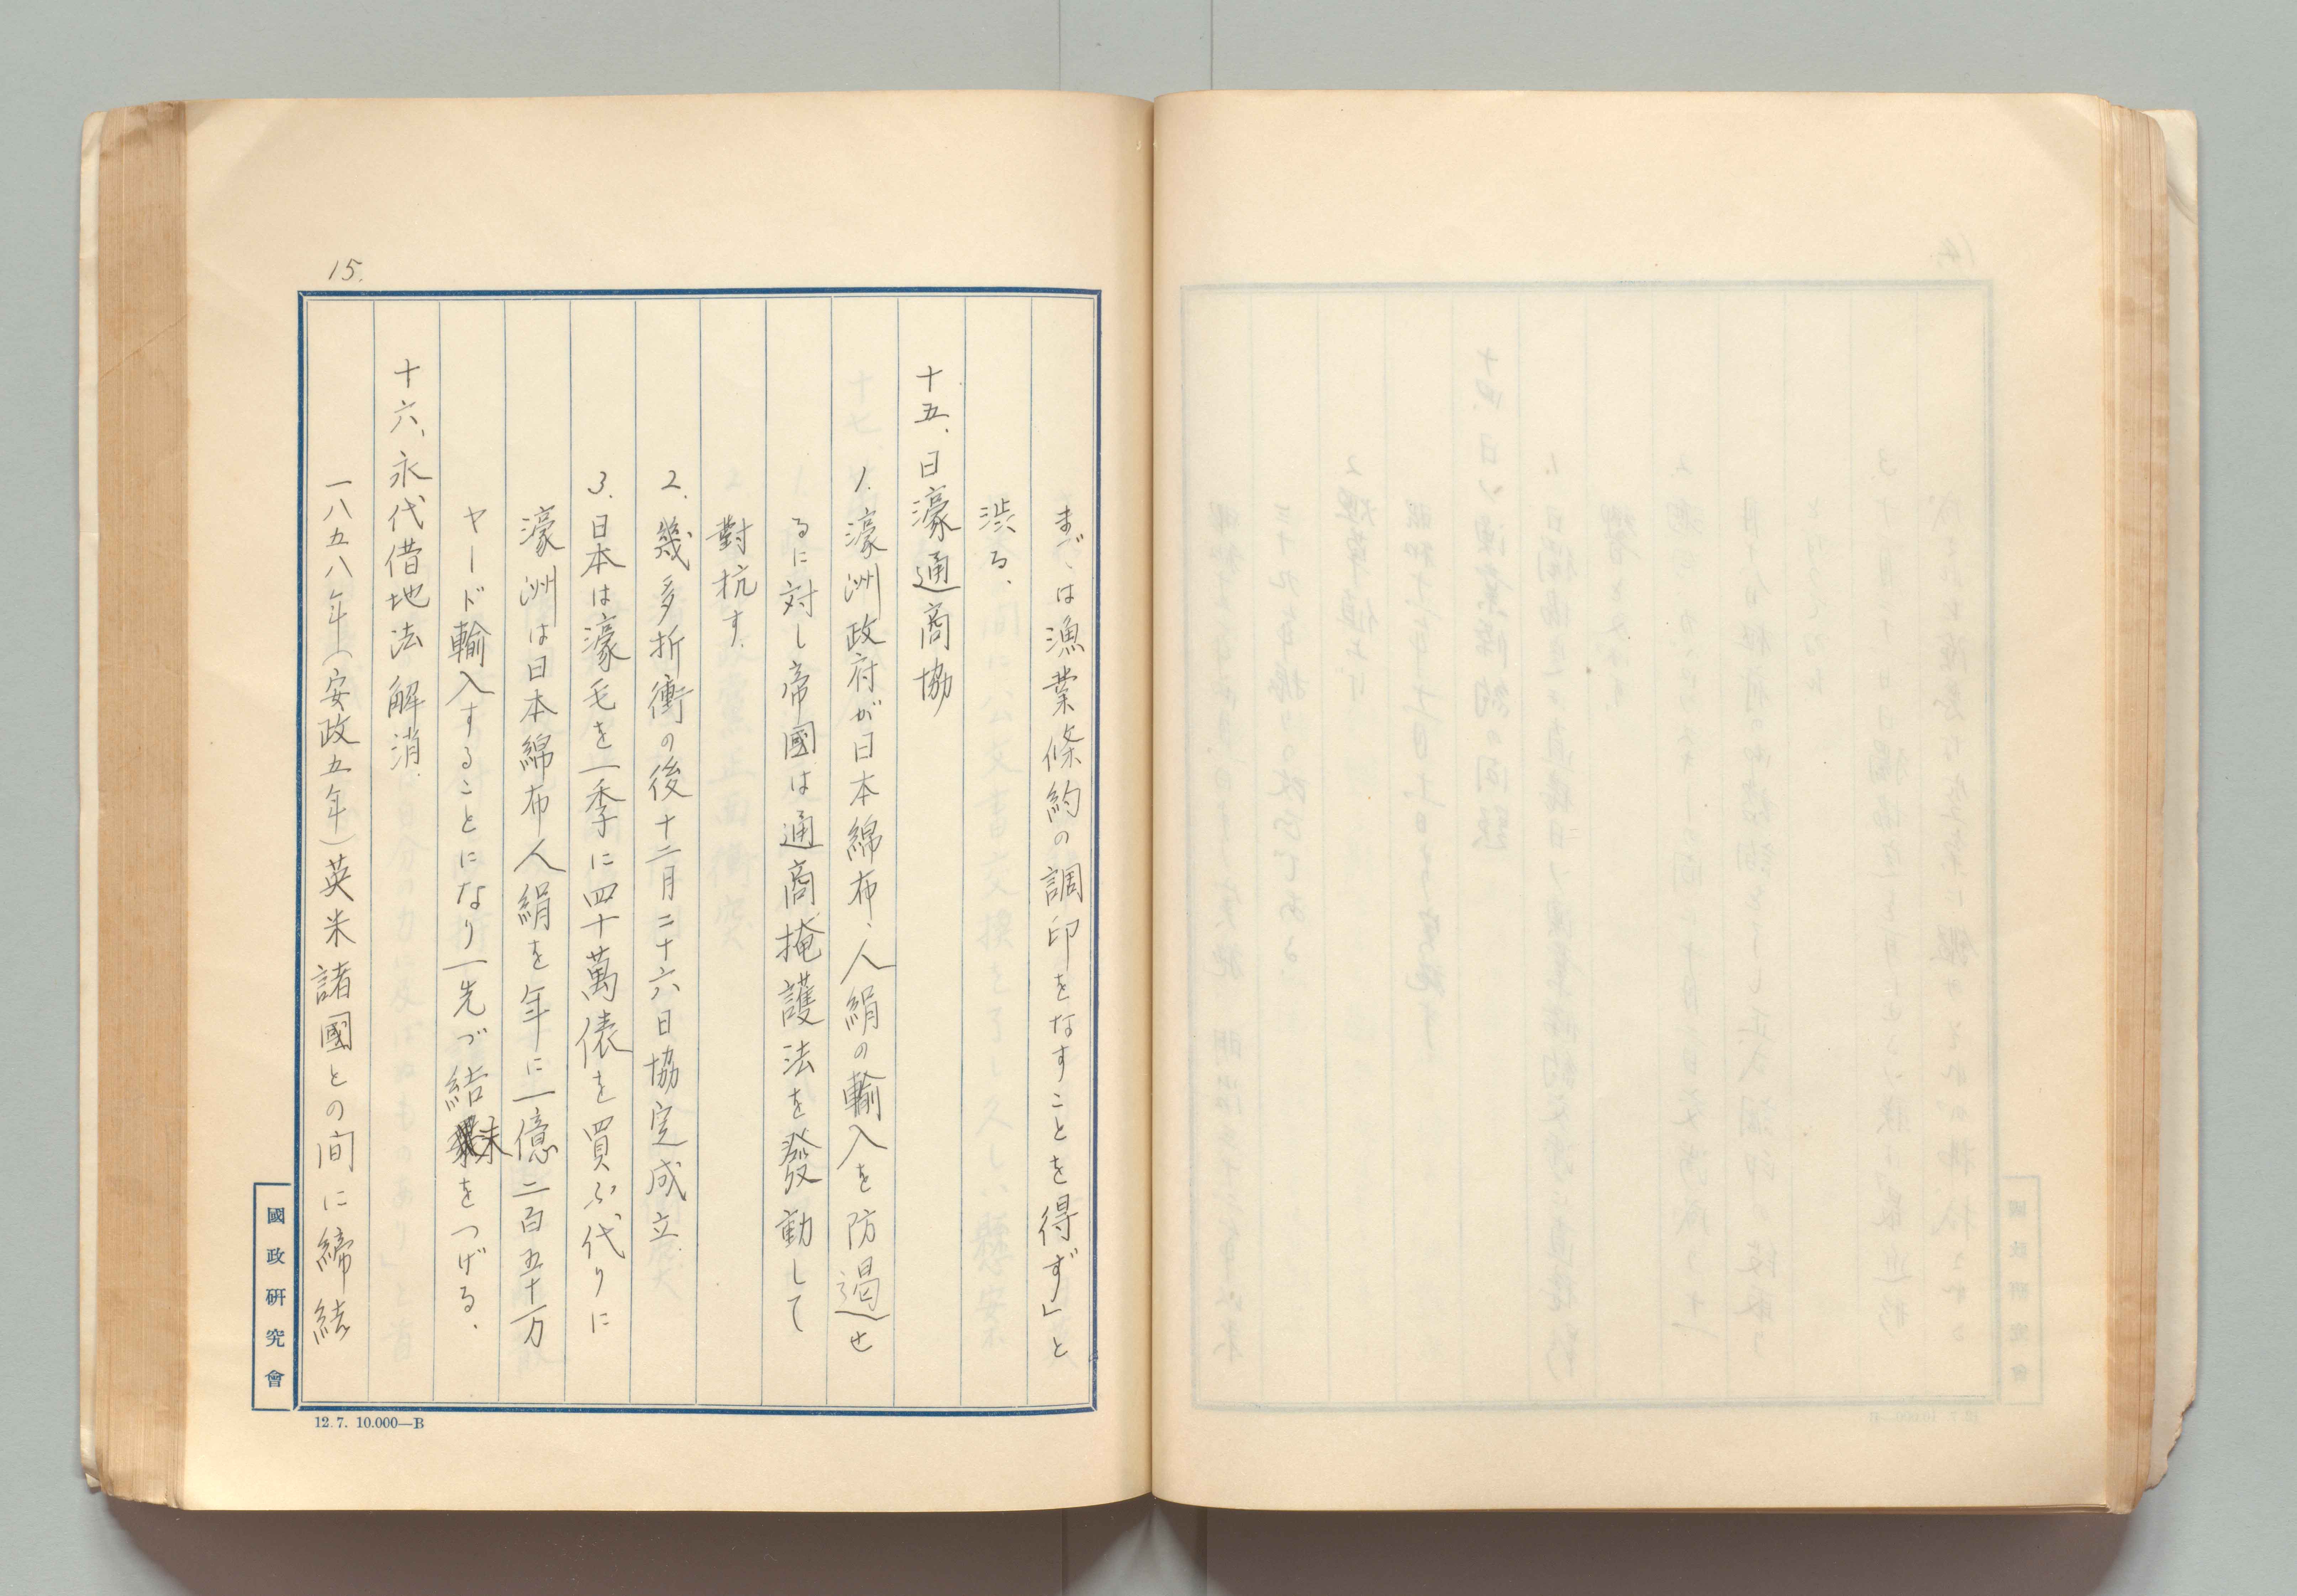 15.
まで、は漁業條約の調印をなすことを得ず」と
渋る、
十五、日濠通商協
1. 濠洲政府が日本綿布、人絹の輸入を防遏せ
るに対し帝國は通商掩護法を發動して
對抗す.
2. 幾多折衝の後十二月二十六日協定成立.
3. 日本は濠毛を一季に四十萬俵を買ふ代りに
濠洲は日本綿布人絹を年に一億二百五十万
ヤード輸入することになり一先づ結末をつげる.
十六、永代借地法解消.
一八五八年(安政五年)英米諸國との间に締結
國政研究會
12.7. 10.000—B